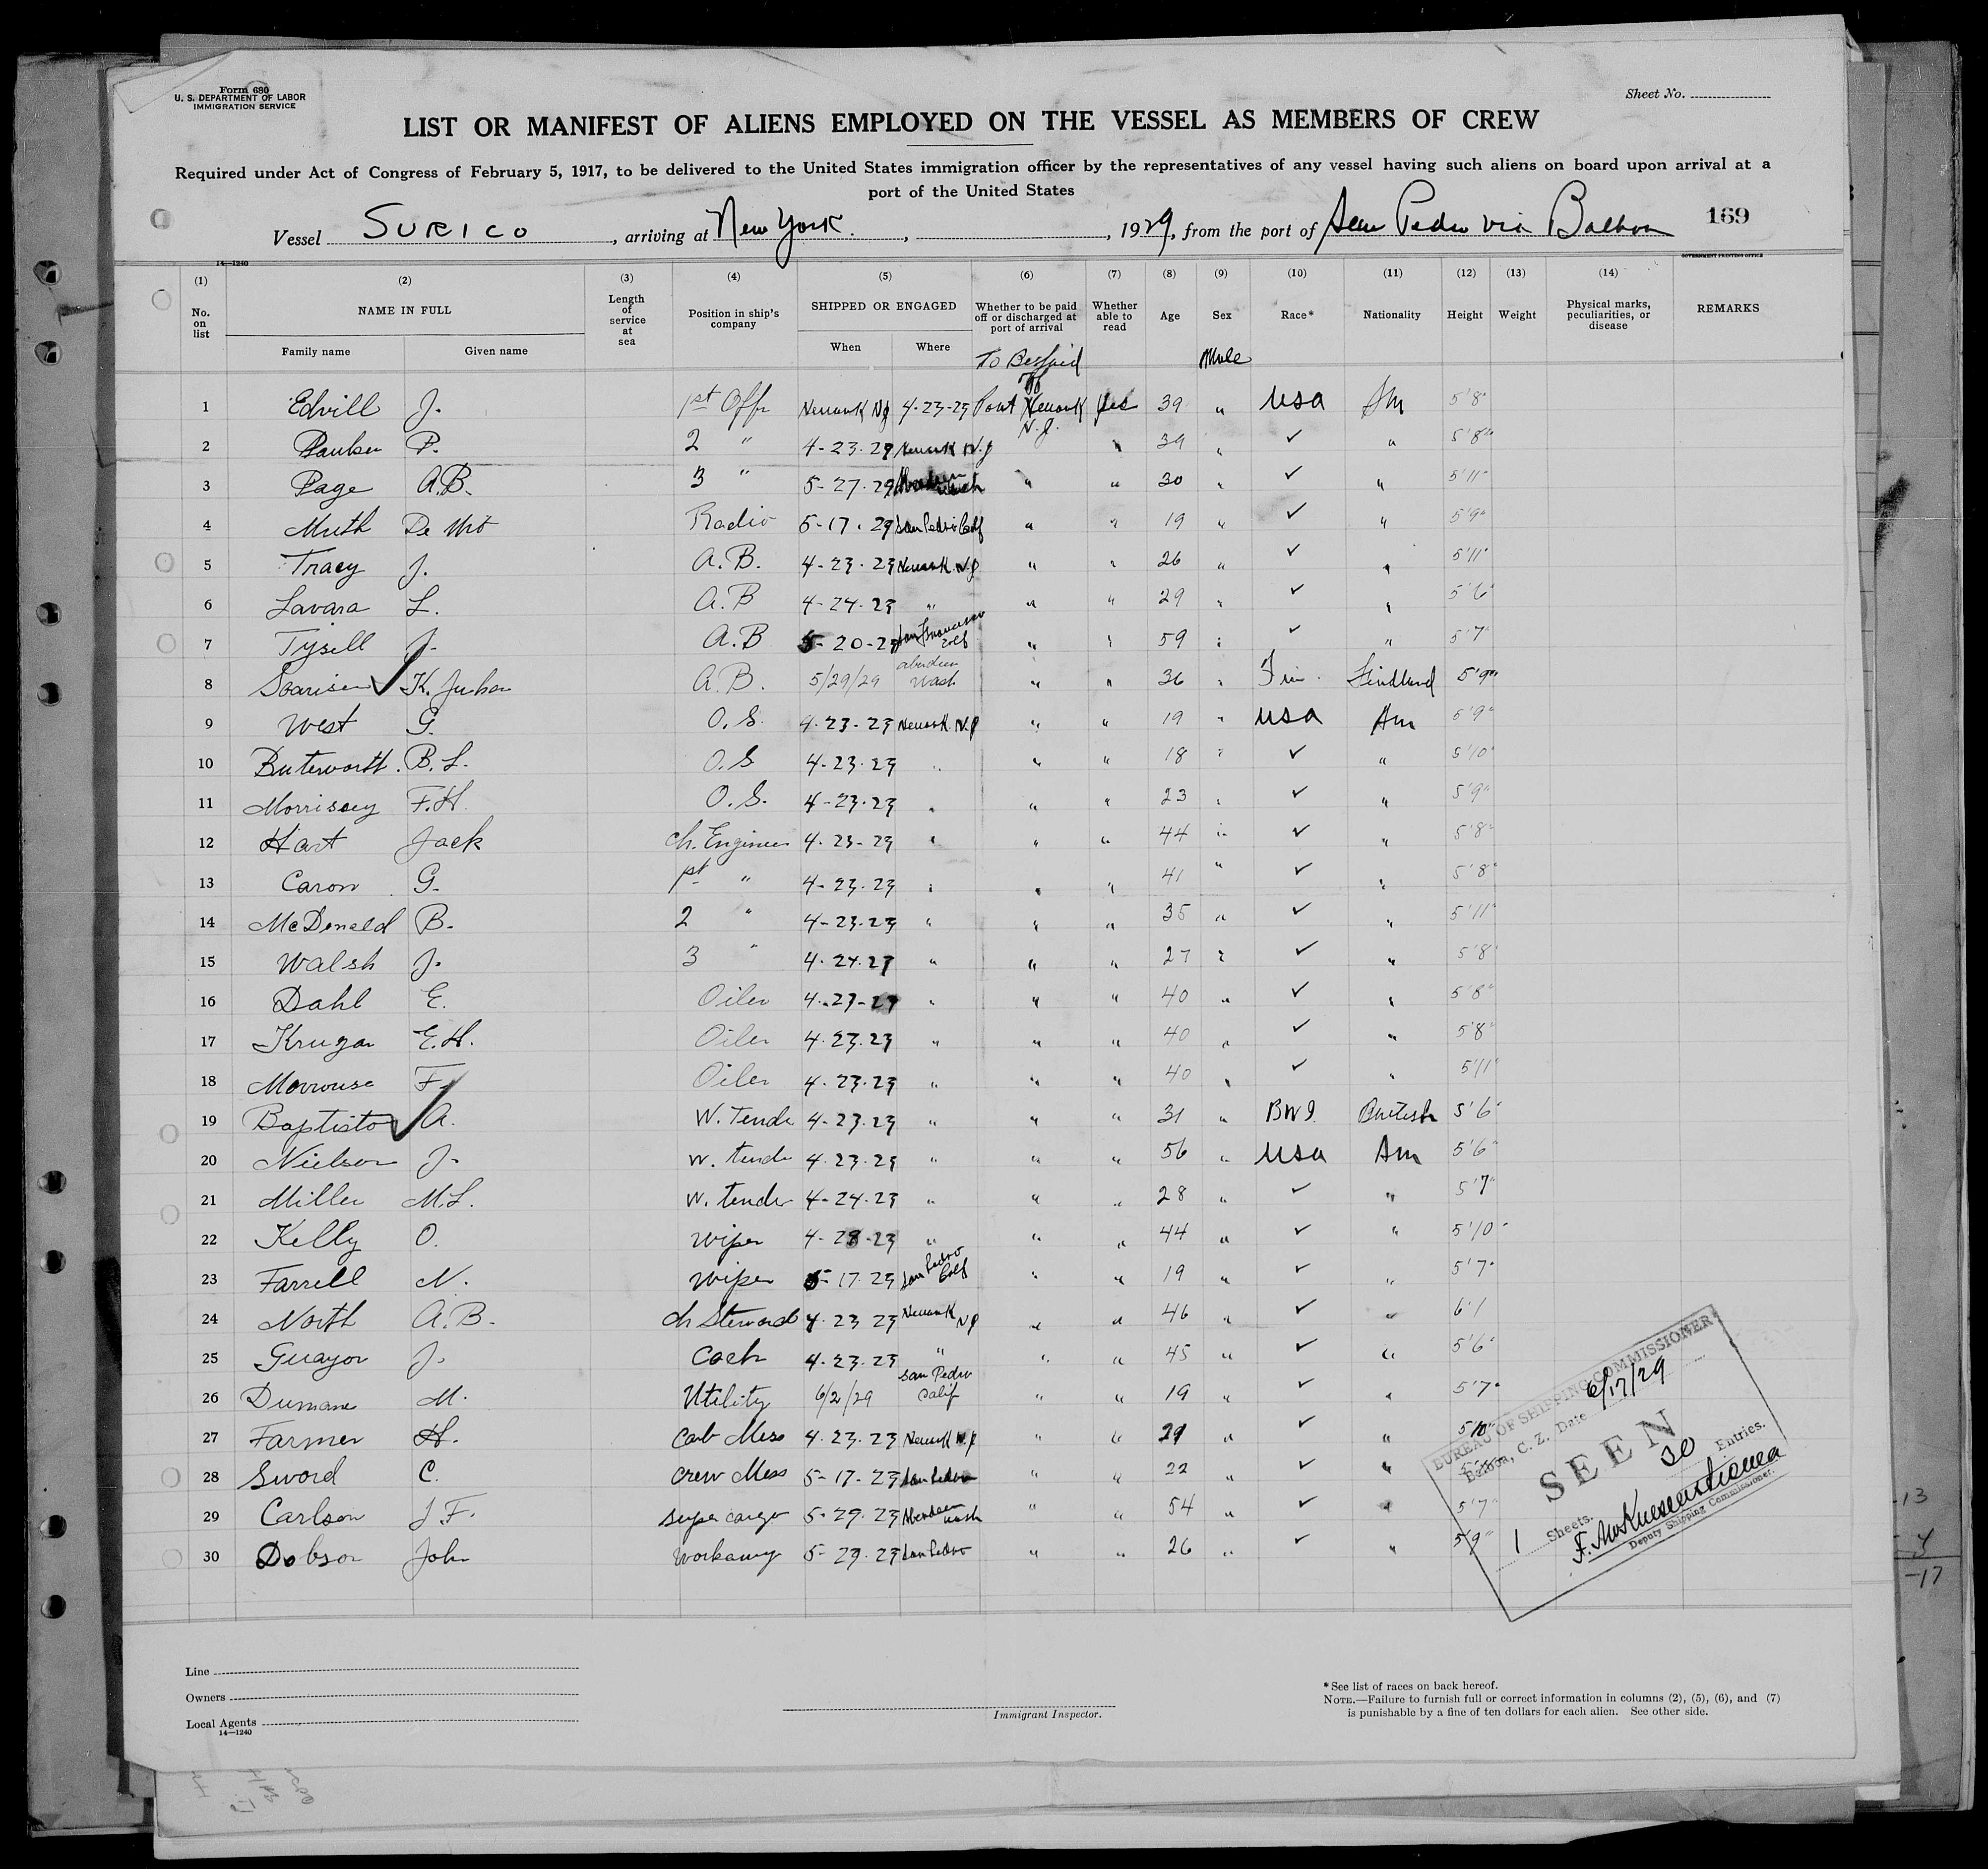 Form 680
U. S. DEPARTMENT OF LABOR
IMMIGRATION SERVICE
Sheet No.
LIST OR MANIFEST OF ALIENS EMPLOYED ON THE VESSEL AS MEMBERS OF CREW
Required under Act of Congress of February 5, 1917, to be delivered to the United States immigration officer by the representatives of any vessel having such aliens on board upon arrival at a
port of the United States
169
Vessel SURICO, arriving at New York., , 1929, from the port of San Pedro via Balboa
14—1240 GOVERNMENT PRINTING OFFICE
(1) (2) (3) (4) (5) (6) (7) (8) (9) (10) (11) (12) (13) (14)
No. on list NAME IN FULL Length of service at sea Position in ship's company SHIPPED OR ENGAGED Whether to be paid off or discharged at port of arrival Whether able to read Age Sex Race* Nationality Height Weight Physical marks, peculiarities, or disease REMARKS
Family name Given name When Where
To Be Paid off Male
1 Edvill J. 1st Offr Newark NJ 4-23-29 Port Newark N.J. yes 39 " USA Am 5'8"
2 P. 2 " 4-23-29 Newark N.J 39 " ✓ " 5'8"
3 Page A.B. 3 " 5-27-29 " " 30 " ✓ " 5'11"
4 Muth De Radio 5-17-29 San Pedro Calf " " 19 " ✓ " 5'9"
5 Tracy J. A.B. 4-23-29 Newark N.J " " 26 " ✓ " 5'11"
6 Lavara L. A.B 4-24-29 " " " 29 " ✓ " 5'6"
7 Tysell J. A.B 5-20-29 San Francisco Calf " " 59 " ✓ " 5'7"
8 K. Juhan A.B. 5/29/29 aberdeen Wash " " 36 " Fin. Findland 5'9"
9 West G. O.S. 4-23-29 Newark N.J " " 19 " USA Am 5'9"
10 Buterworth B.L. O.S 4-23-29 " " " 18 " ✓ " 5'10"
11 Morrissey F.H. O.S. 4-23-29 " " " 23 " ✓ " 5'9"
12 Hart Jack Ch. Engineer 4-23-29 " " " 44 " ✓ " 5'8"
13 Caron G. 1st " 4-23-29 " " " 41 " ✓ " 5'8"
14 McDonald B. 2 " 4-23-29 " " " 35 " ✓ " 5'11"
15 Walsh J. 3 " 4-24-29 " " " 27 " ✓ " 5'8"
16 Dahl E. Oiler 4-23-29 " " " 40 " ✓ " 5'8"
17 Kruzar E.H. Oiler 4-23-29 " " " 40 " ✓ " 5'8"
18 F. Oiler 4-23-29 " " " 40 " ✓ " 5'11"
19 Baptista A. W. Tender 4-23-29 " " " 31 " BWI British 5'6"
20 Nielson J. W. tender 4-23-29 " " " 56 " USA Am 5'6"
21 Miller M.L. W. tender 4-24-29 " " " 28 " ✓ " 5'7"
22 Kelly O. Wiper 4-28-29 " " " 44 " ✓ " 5'10"
23 Farrell N. Wiper 5-17-29 San Pedro Calf " " 19 " ✓ " 5'7"
24 North A.B. Ch Steward 4-23 29 Newark NJ " " 46 " ✓ " 6'1
25 Guayon J. Cook 4-23-29 " " " 45 " ✓ " 5'6"
26 Dumane M. Utility 6/2/29 San Pedro Calif " " 19 " ✓ " 5'7"
27 Farmer H. Cab Mess 4-23-29 Newark N.J " " 29 " ✓ " 5'10"
28 Sword C. Crew Mess 5-17-29 San Pedro " " 22 " ✓ "
29 Carlson J.F. Super cargo 5-29-29 Aberdeen Wash " " 54 " ✓ " 5'7"
30 Dobson John Workaway 5-29-29 San Pedro " " 26 " ✓ " 5'9"
BUREAU OF SHIPPING COMMISSIONER
Balboa, C. Z. Date 6/17/29
SEEN
1 Sheets. 30 Entries.
Deputy Shipping Commissioner.
-13
-4
-17
Line
Owners
Local Agents
14—1240
Immigrant Inspector.
*See list of races on back hereof.
NOTE.—Failure to furnish full or correct information in columns (2), (5), (6), and (7)
is punishable by a fine of ten dollars for each alien. See other side.